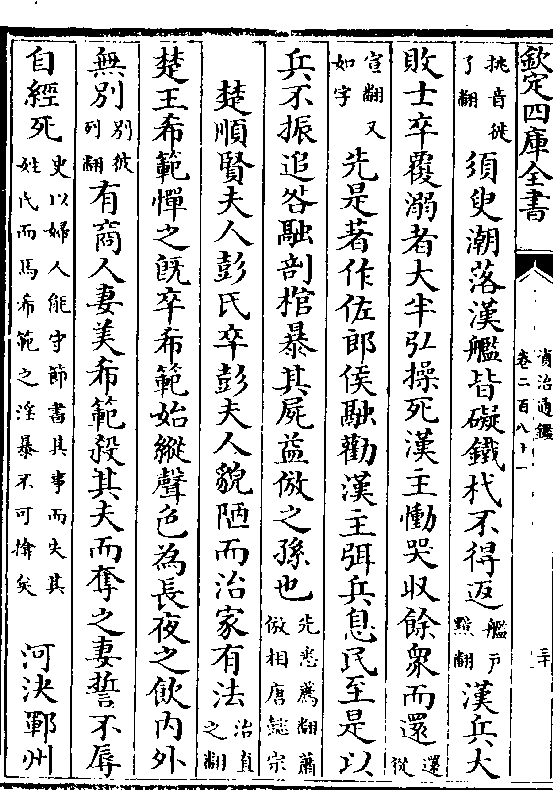 欽定四庫全書
資治通鑑
卷二百八十一
挑音徒了翻須臾潮落漢艦皆礙鐵杙不得返艦户黯翻漢兵大
敗士卒覆溺者大半弘操死漢主慟哭收餘衆而還還從
宣翻又如字先是著作佐郎侯融勸漢主弭兵息民至是以
兵不振追咎融剖棺暴其屍益倣之孫也先悉薦翻蕭倣相唐懿宗
楚順賢夫人彭氏卒彭夫人貌陋而治家有法治直之翻
楚王希範憚之既卒希範始縱聲色為長夜之飲内外
無别别彼列翻有商人妻美希範殺其夫而奪之妻誓不辱
自經死史以婦人能守節書其事而失其姓氏而馬希範之淫暴不可揜矣河決鄆州